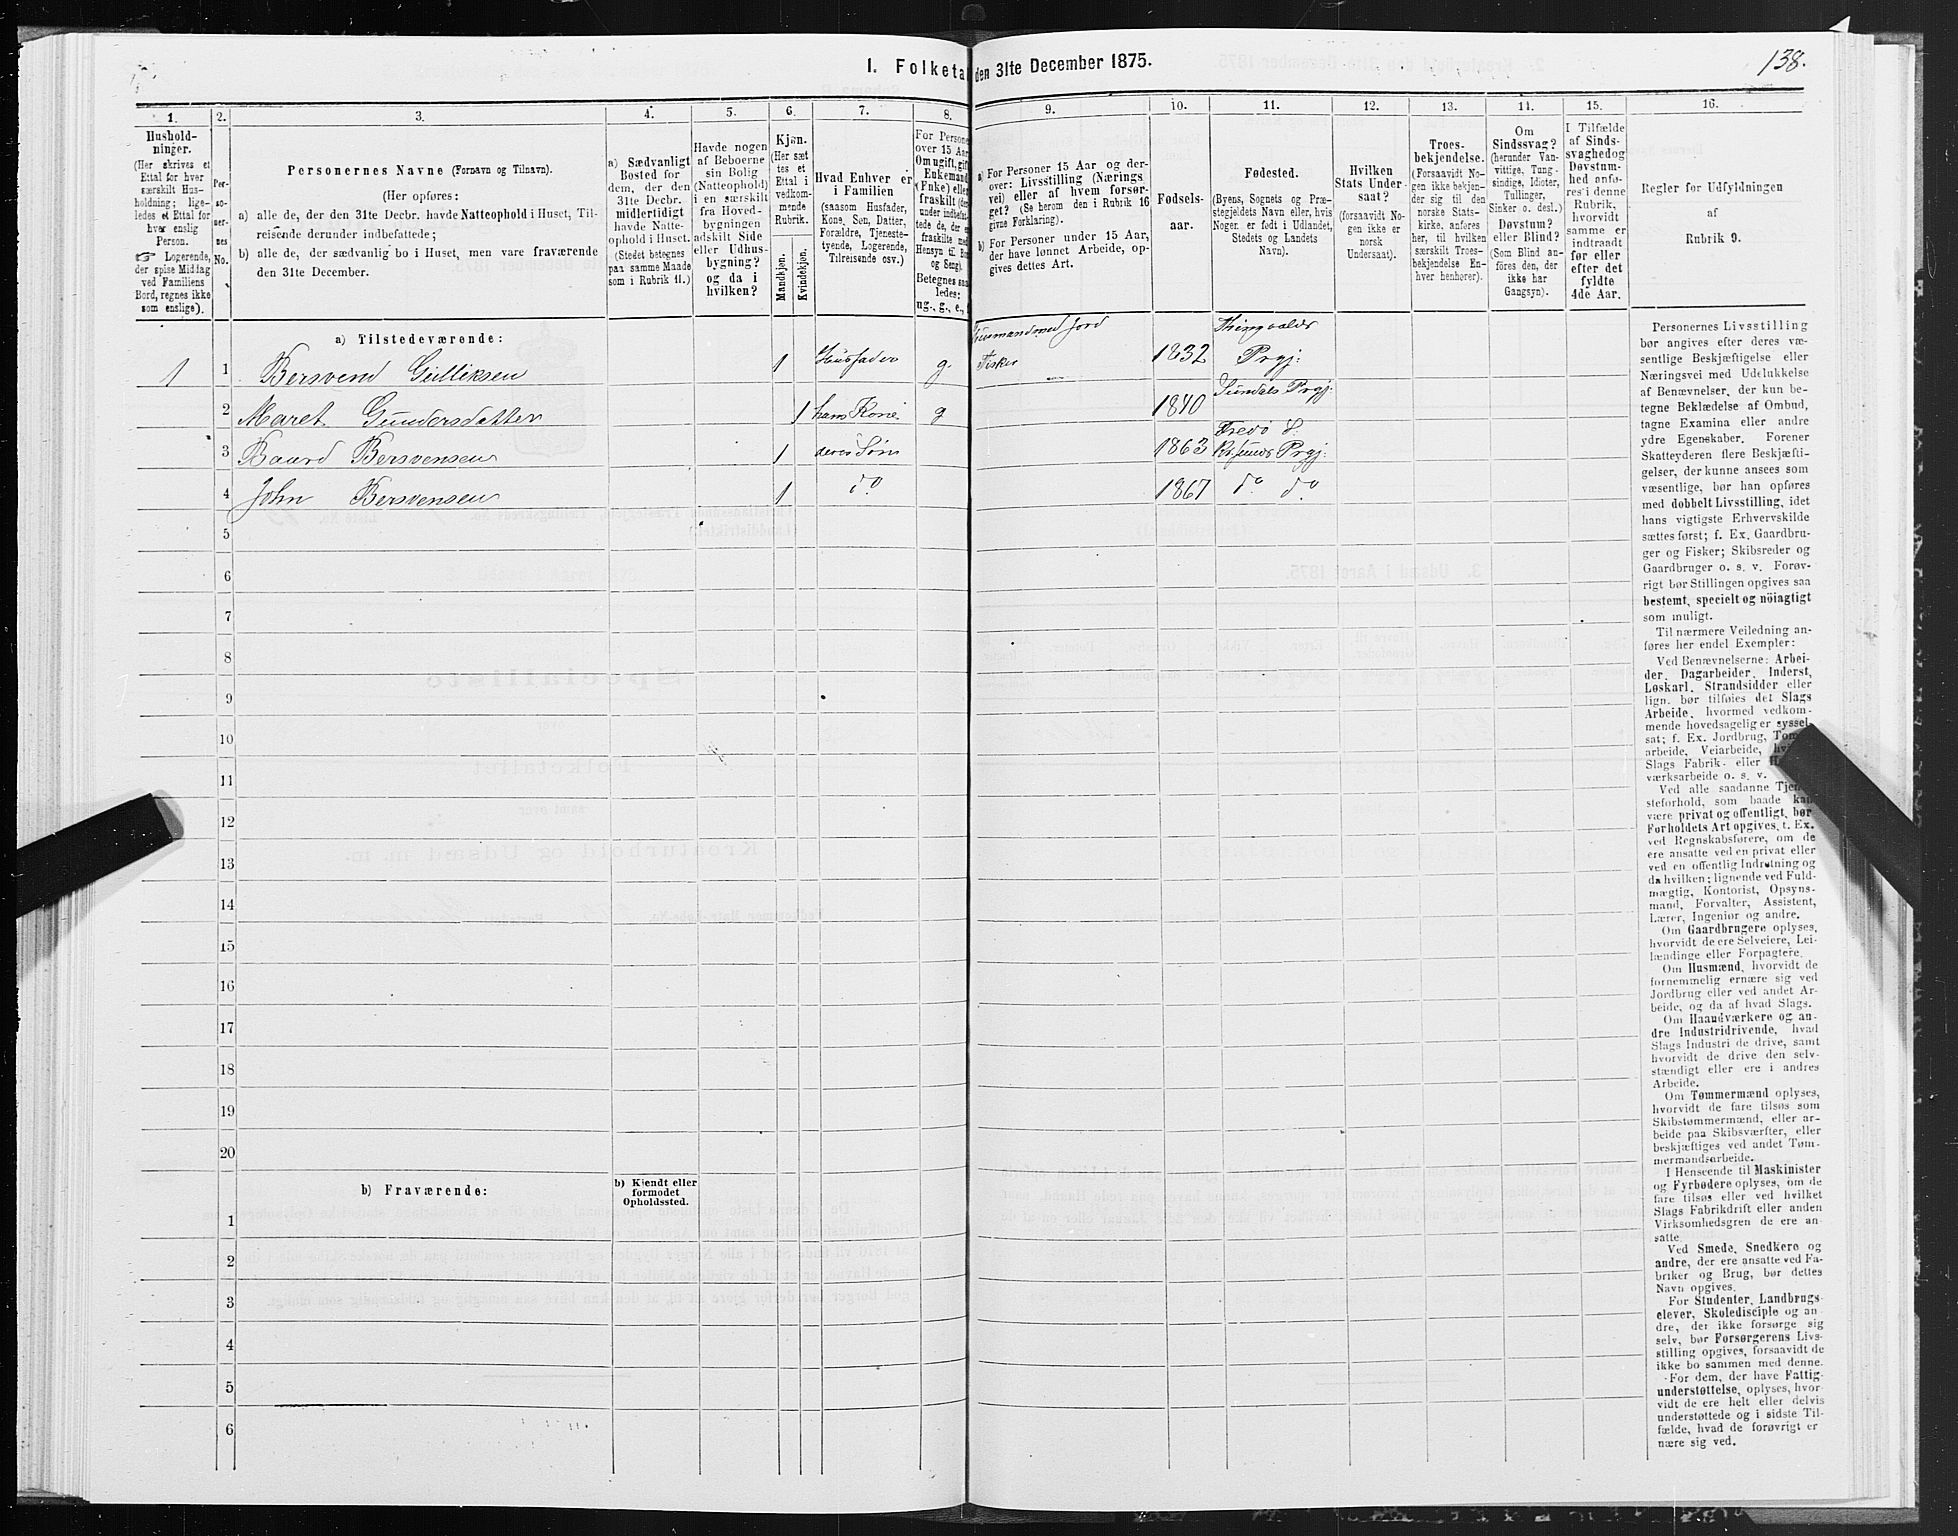 I. Folketa
den 31te December 1875.
138.
1.
2.
3.
4.
5.
6.
7.
8.
9.
10.
11.
12.
13.
14.
15.
16.
Hushold-
ninger.
(Her skrives et
Ettal for hver
særskilt Hus-
holdning; lige-
ledes et Ettal for
hver enslig
Person.
☞ Logerende,
der spise Middag
ved Familiens
Bord, regnes ikke
som enslige).
Per-
so-
ner-
nes
No.
Personernes Navne (Fornavn og Tilnavn).
(Her opføres:
a) alle de, der den 31te Decbr. havde Natteophold i Huset, Til-
reisende derunder indbefattede;
b) alle de, der sædvanlig bo i Huset, men vare fraværende
den 31te December.
a) Sædvanligt
Bosted for
dem, der den
31te Decbr.
midlertidigt
havde Natte-
ophold i Huset.
(Stedet betegnes
paa samme Maade
som i Rubrik 11.)
Havde nogen
af Beboerne
sin Bolig
(Natteophold)
i en særskilt
fra Hoved-
bygningen
adskilt Side
eller Udhus-
bygning?
og da i
hvilken?
Kjøn.
(Her sæt
tes et
Ettal i
vedkom-
mende
Rubrik.
Mandkjøn.
Kvindekjøn.
Hvad Enhver er
i Familien
(saasom Husfader,
Kone, Søn, Datter,
Forældre, Tjeneste-
tyende, Logerende,
Tilreisende osv.)
For Persone
over 15 Aar
Om ugift, gift
Enkemand
(Enke) elle
fraskilt (der
under indbefat-
tede de, der e
fraskilte med
Hensyn til Bo
og Seng).
Betegnes saa
ledes:
ug., g., e.,
a) For Personer 15 Aar og der-
over: Livsstilling (Nærings
vei) eller af hvem forsør-
get? (Se herom den i Rubrik 16
givne Forklaring).
b) For Personer under 15 Aar,
der have lønnet Arbeide, op-
gives dettes Art.
Fødsels-
aar.
Fødested.
(Byens, Sognets og Præ-
stegjeldets Navn eller, hvis
Noger er født i Udlandet,
Stedets og Landets
Navn).
Hvilken
Stats Under-
saat?
(forsaavidt No-
gen ikke er
norsk
Undersaat).
Troes-
bekjendelse.
(Forsaavidt No-
gen ikke bekjen-
der sig til den
norske Stats-
kirke, anføres
her, til hvilken
særskilt Troes-
bekjendelse En-
hver henhører).
Om
Sindssvag?
(herunder Van-
vittige, Tung-
sindige, Idioter,
Tullinger,
Sinker o. desl.)
Døvstum?
eller Blind?
(Som Blind an-
føres den, der
ikke har
Gangsyn).
I Tilfælde
af Sinds-
svaghed og
Døvstum-
hed anfø-
res i denne
Rubrik,
hvorvidt
samme er
indtraadt
før eller
efter det
fyldte
4de Aar.
Regler før Udfyldningen
af
Rubrik 9.
a) Tilstedeværende:
1 1 Bersvend Gulliksen 1 Husfader g. Husmand med Jord
Fisker 1832 Thingvolds
Prgj:
2 Maret Gundersdatter 1 hans Kone g 1840 Sundals Prgj:
3 Baard Bersvensen 1 deres Søn 1863 Fredø S:
Prgj:
4 John Bersvensen 1 do 1867 do do
5
6
7
8
9
10
11
12
13
14
15
16
17
18
19
20
b) Fraværende:
b) Kjendt eller
formodet
Opholdssted.
1
2
3
4
5
6
Personernes Livsstilling
bør angives efter deres væ-
sentlige Beskjæftigelse eller
Næringsvei med Udelukkelse
af Benævnelser, der kun be-
tegne Beklædelse af Ombud,
tagne Examina eller andre
ydre Egenskaber. Forener
Skatteyderen flere Beskjæfti-
gelser, der kunne ansees som
væsentlige, bør han opføres
med dobbelt Livsstilling, idet
hans vigtigste Erhvervskilde
sættes først; f. Ex. Gaardbru-
ger og Fisker; Skibsreder og
Gaardbruger o. s. v. Forøv-
rigt bør Stillingen opgives saa
bestemt, specielt og nöiagtigt
som muligt.
Til nærmere Veiledning an-
føres her endel Exempler:
Ved Benævnelserne: Arbei-
der, Dagarbeider, Inderst,
Løskarl, Strandsidder eller
lign. bør tilføies det Slags
Arbeide, hvormed vedkom-
mende hovedsagelig er syssel-
sat; f. Ex. Jordbrug,
arbeide, Veiarbeide,
Slags Fabrik- eller
værksarbeide o. s. v.
Ved alle saadanne Tjen
steforhold, som baade kan
være privat og offentligt, bør
Forholdets Art opgives, t. Ex.
ved Regnskabsførere, om de
ere ansatte ved en privat eller
ved en offentlig Indretning og
da hvilken; lignende ved Fuld-
mægtig, Kontorist, Opsyns-
mand, Forvalter, Assistent,
Lærer, Ingeniør og andre.
Om Gaardbrugere oplyses,
hvorvidt de ere Selveiere, Lei-
lændinge eller Forpagtere.
Om Husmænd, hvorvidt de
fornemmelig ernære sig ved
Jordbrug eller ved andet Ar-
beide, og da af hvad Slags.
Om Haandværkere og an-
dre Industridrivende, hvad
Slags Industri de drive, samt
hvorvidt de drive den selv-
stændigt eller ere i andres
Arbeide.
Om Tømmermænd oplyses,
hvorvidt de fare tilsøs som
Skibstømmermænd, eller ar-
beide paa Skibsværfter, eller
beskjæftiges ved andet Tøm-
mermandsarbeide.
I Henseende til Maskinister
og Fyrbødere oplyses, om de
fare tilsøs eller ved hvilket
Slags Fabrikdrift eller anden
Virksomhedsgren de ere an-
satte.
Ved Smede, Snedkere og
andre, der ere ansatte ved Fa-
briker og Brug, bør dettes
Navn opgives.
For Studenter, Landbrugs-
elever, Skoledisciple og an-
dre, der ikke forsørge sig
selv, bør Forsørgerens Livs-
stilling opgives, forsaavidt de
ikke bo sammen med denne.
For dem, der have Fattig-
understøttelse, oplyses, hvor-
vidt de ere helt eller delvis
understøttede og i sidste Til-
fælde, hvad de forøvrigt er
nære sig ved.